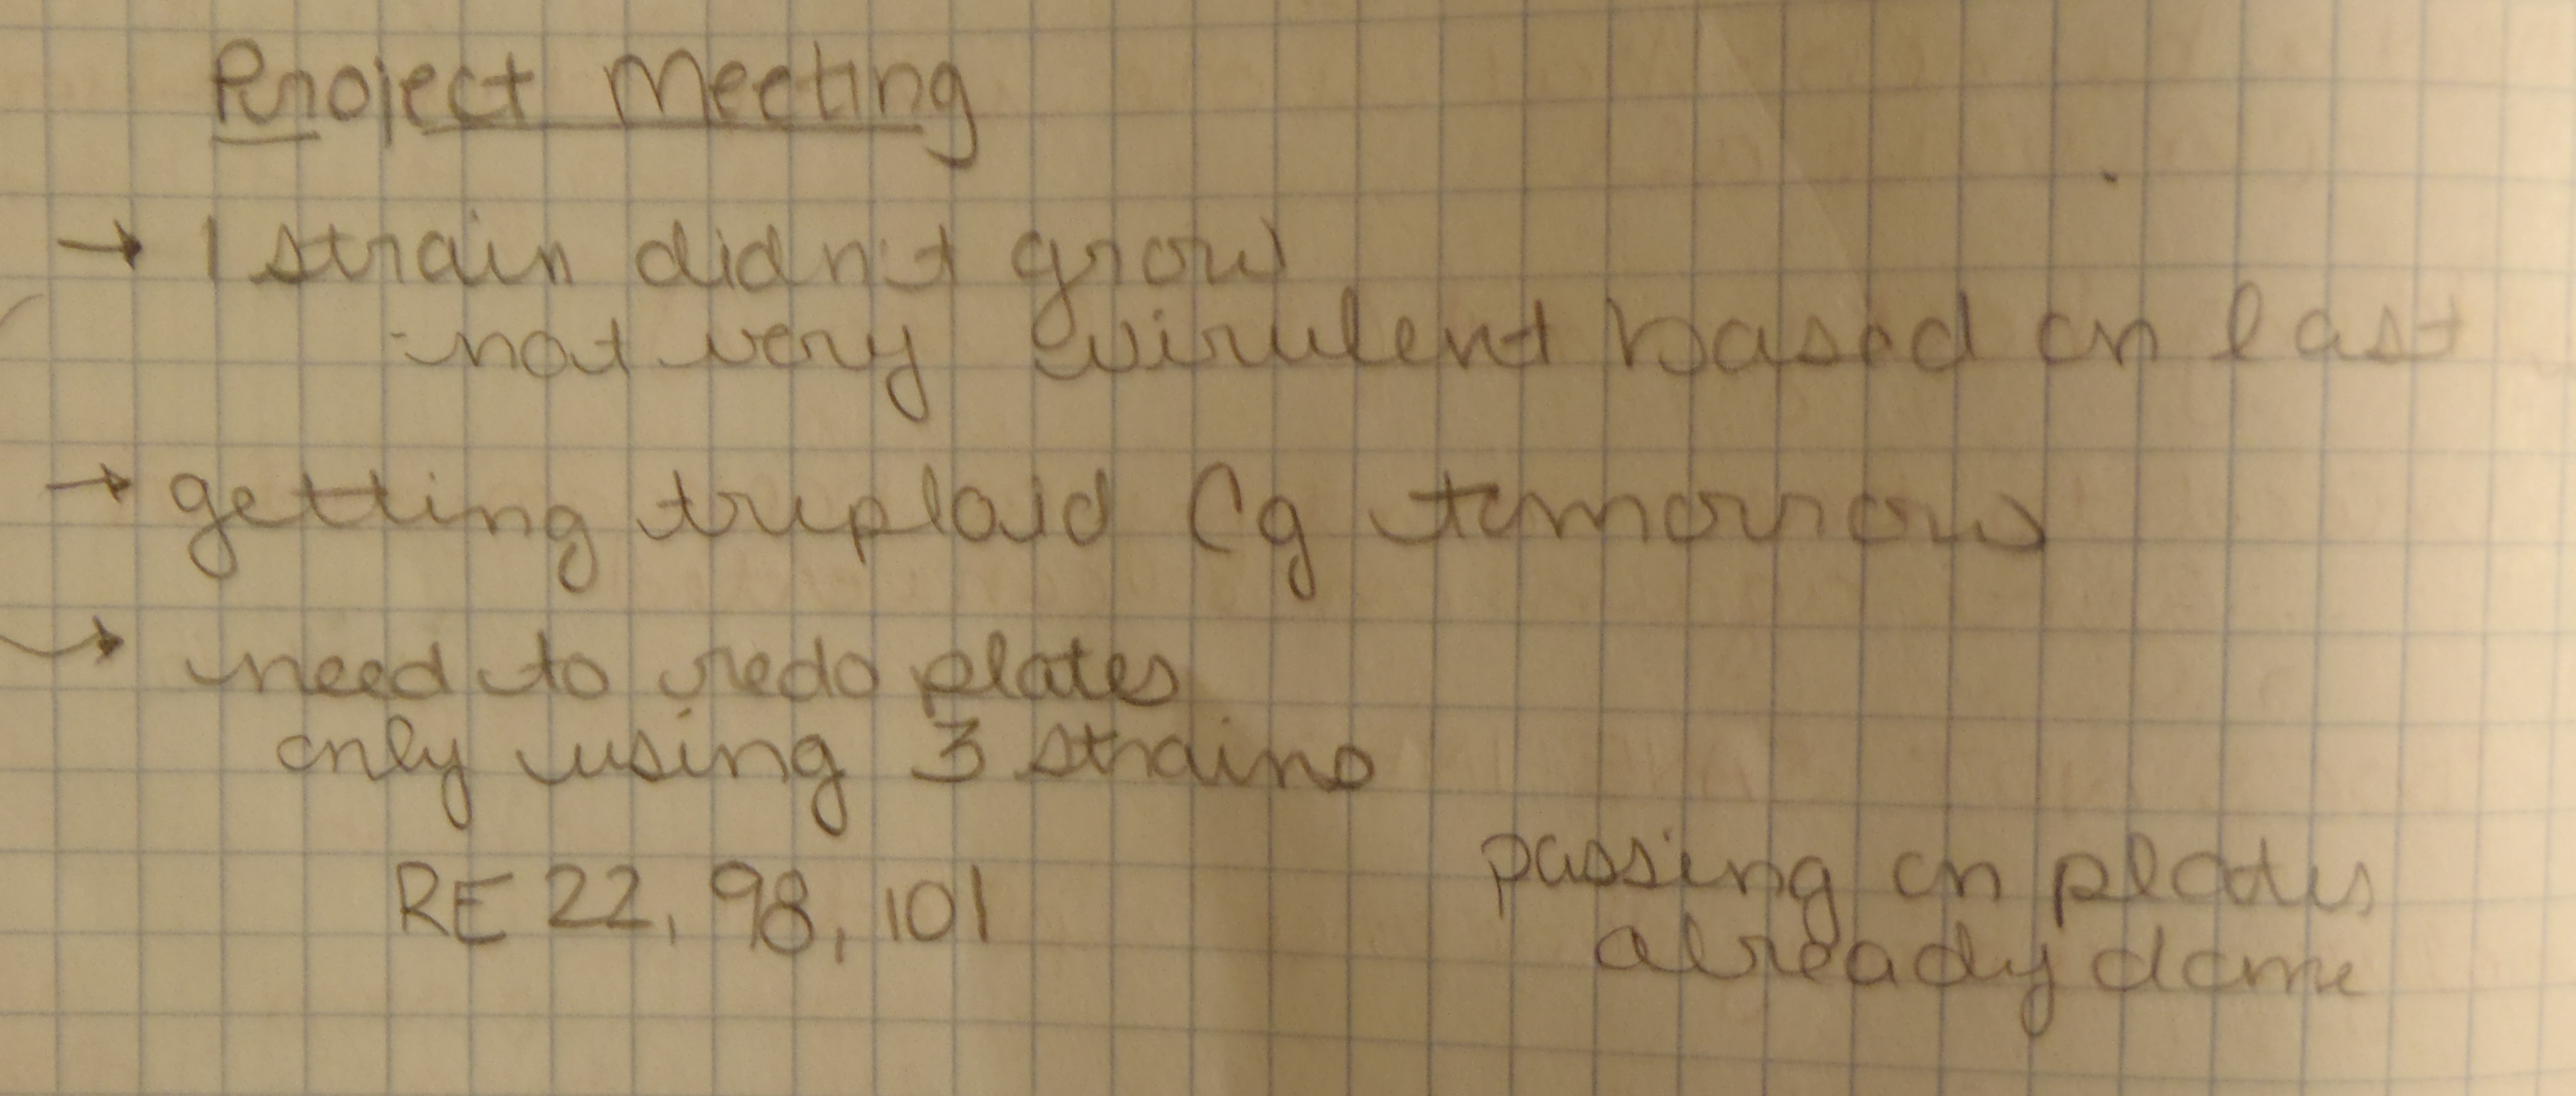 Project Meeting
→ 1 strain didn't grow
- not very virulent based on last
→ getting triploid Cg tomorrow
→ need to redo plates
only using 3 strains
RE 22, 98, 101
passing on plates
already done